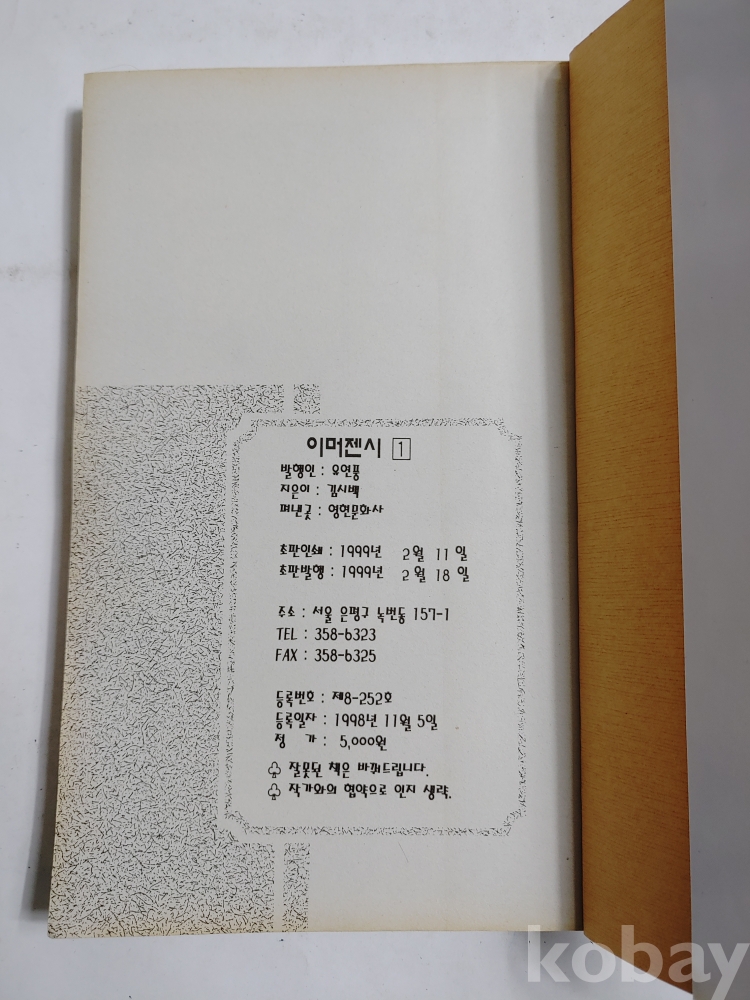 이머젠시 1
발행인 : 유연풍
지은이 : 김시백
펴낸곳 : 영현문화사
초판인쇄 : 1999년 2월 11일
초판발행 : 1999년 2월 18일
주소 : 서울 은평구 녹번동 157-1
TEL : 358-6323
FAX : 358-6325
등록번호 : 제8-252호
등록일자 : 1998년 11월 5일
정 가 : 5,000원
♧ 잘못된 책은 바꿔드립니다.
♧ 작가와의 협약으로 인지 생략.
kobay